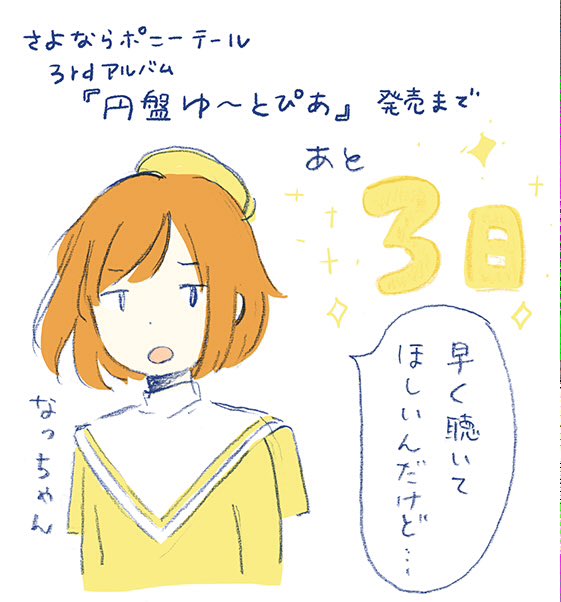 さよならポニーテール
3rdアルバム
『円盤ゆ〜とぴあ』発売まで
あと
3日
早く聴いて
ほしいんだけど…
なっちゃん